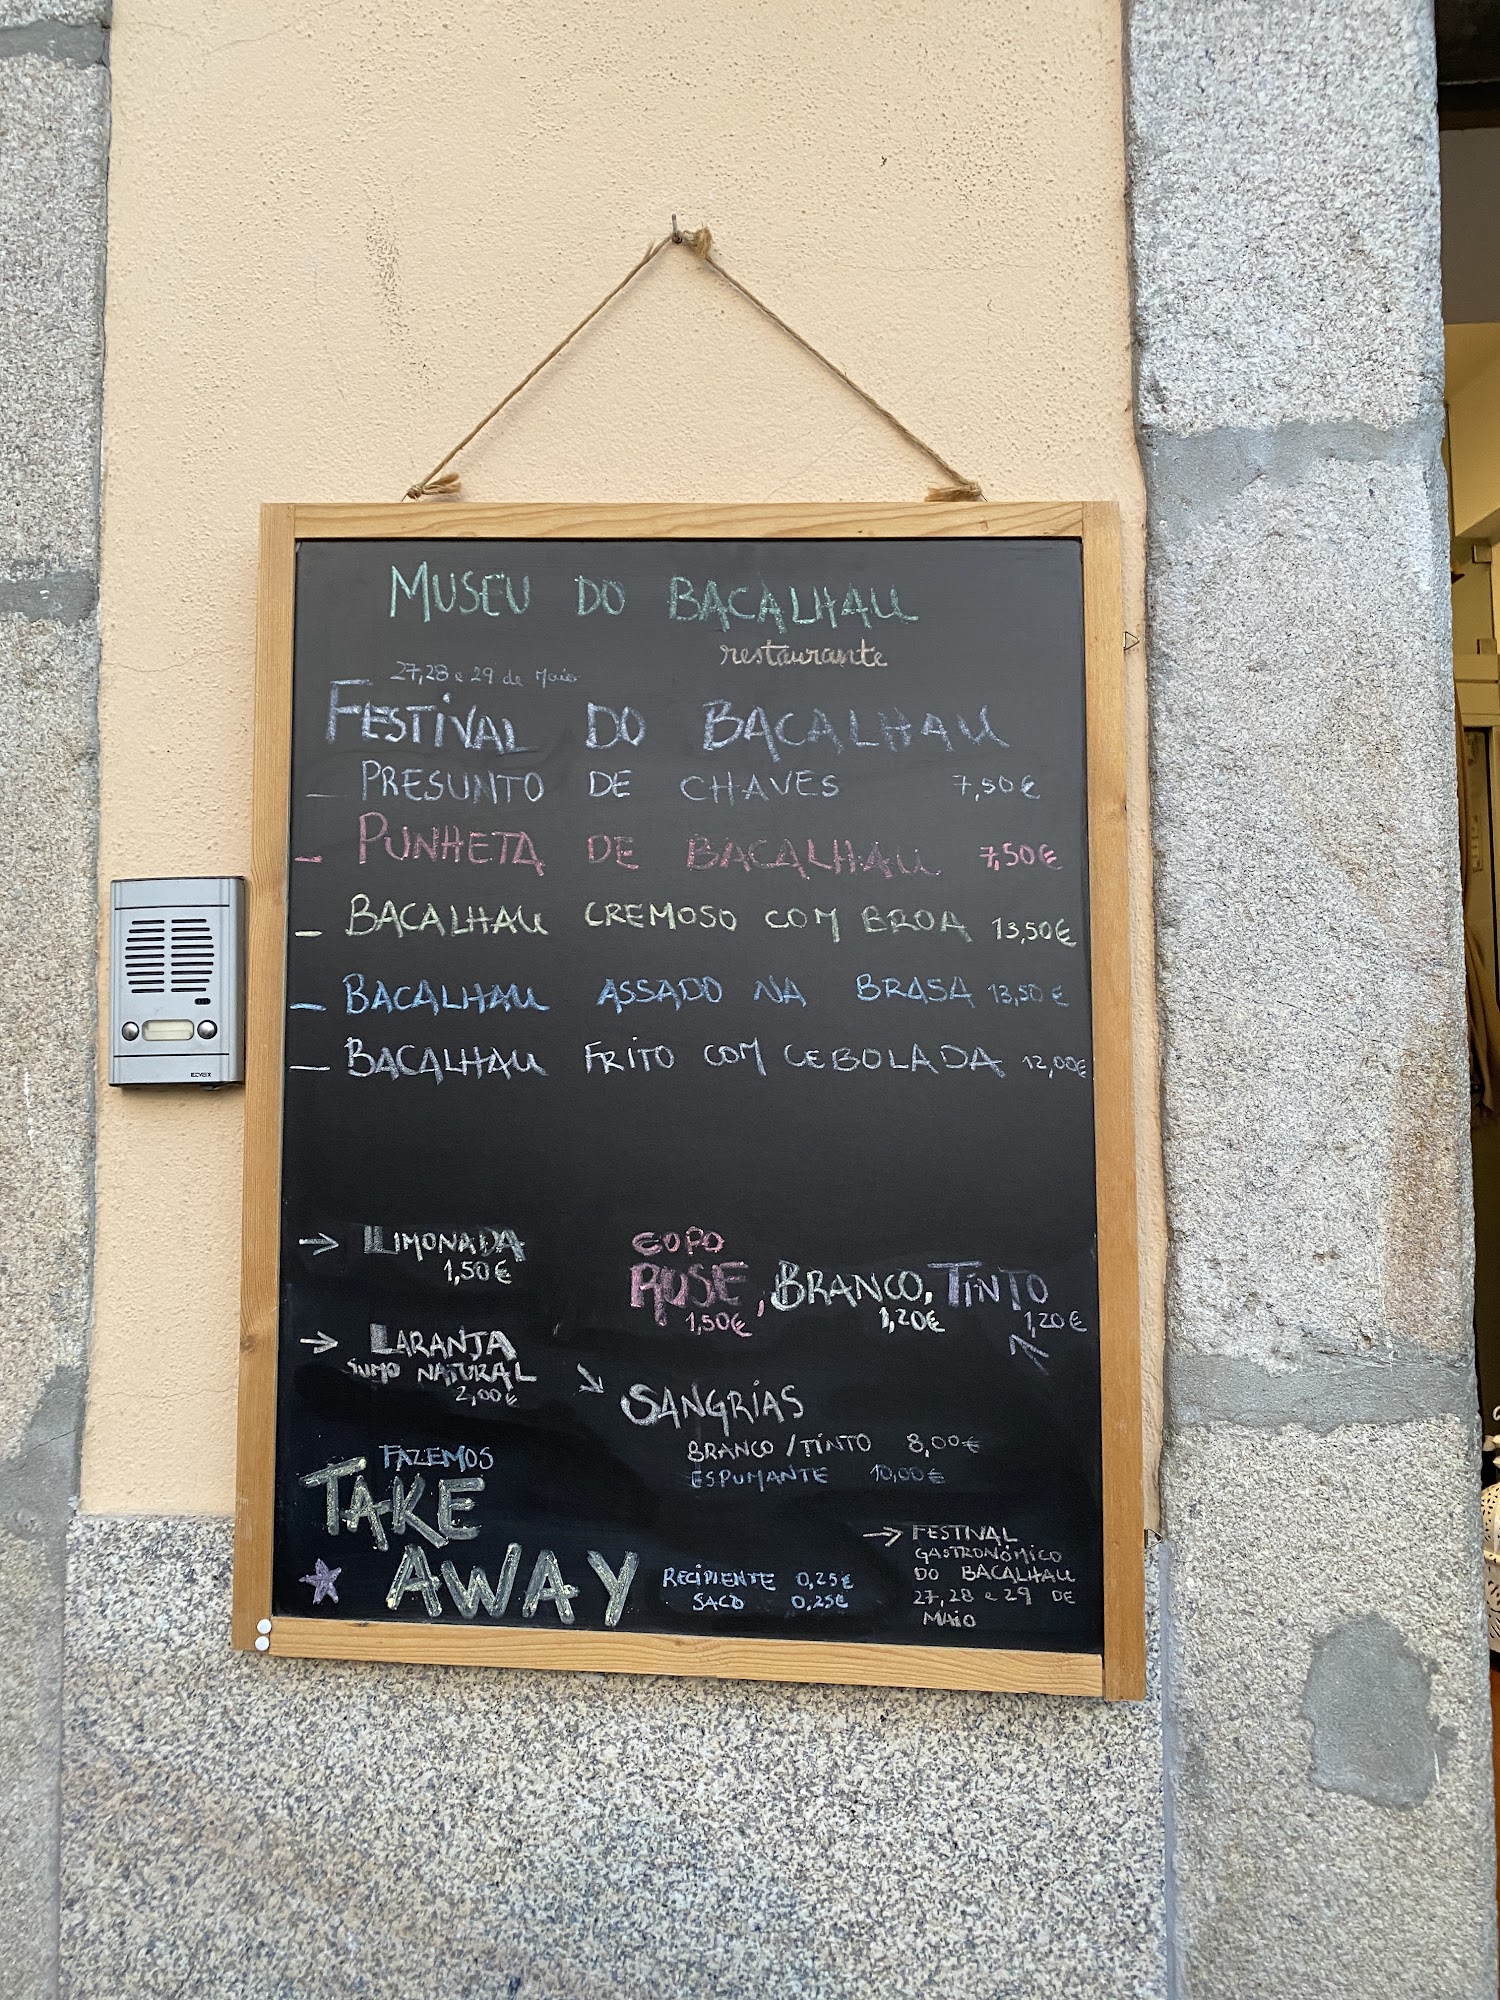 MUSEU DO BACALHAU
restaurante
27, 28 e 29 de Maio
FESTIVAL DO BACALHAU
- PRESUNTO DE CHAVES 7,50€
- PUNHETA DE BACALHAU 7,50€
- BACALHAU CREMOSO COM BROA 13,50€
- BACALHAU ASSADO NA BRASA 13,50€
- BACALHAU FRITO COM CEBOLADA 12,00€
→ LIMONADA
1,50€
→ LARANJA
SUMO NATURAL
2,00€
COPO
ROSE, BRANCO, TINTO
1,50€ 1,20€ 1,20€
SANGRIAS
BRANCO / TINTO 8,00€
ESPUMANTE 10,00€
FAZEMOS
TAKE
AWAY
RECIPIENTE 0,25€
SACO 0,25€
→ FESTIVAL
GASTRONÓMICO
DO BACALHAU
27, 28 e 29 DE
MAIO